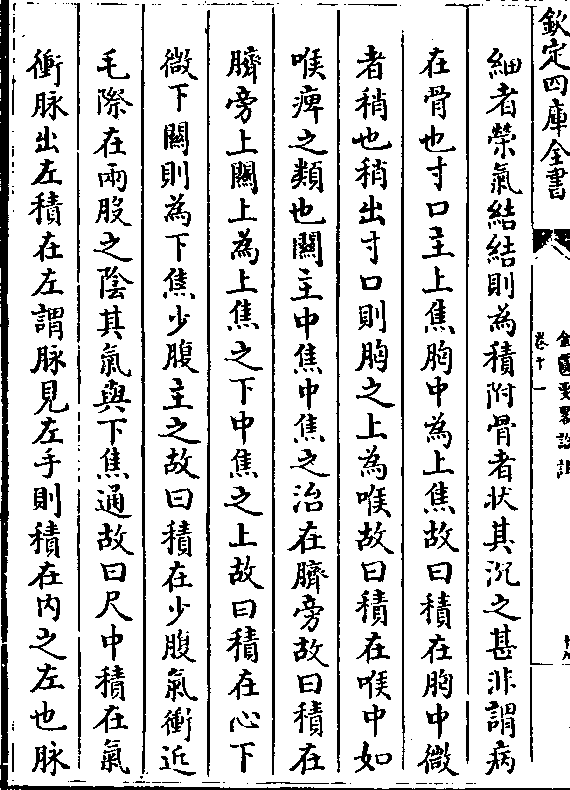 欽定四庫全書
金匱要略論註
卷十一
細者榮氣結結則為積附骨者狀其沉之甚非謂病
在骨也寸口主上焦胸中為上焦故曰積在胸中微
者稍也稍出寸口則胸之上為喉故曰積在喉中如
喉痺之類也關主中焦中焦之治在臍旁故曰積在
臍旁上關上為上焦之下中焦之上故曰積在心下
微下關則為下焦少腹主之故曰積在少腹氣衝近
毛際在兩股之陰其氣與下焦通故曰尺中積在氣
衝脉出左積在左謂脉見左手則積在内之左也脉